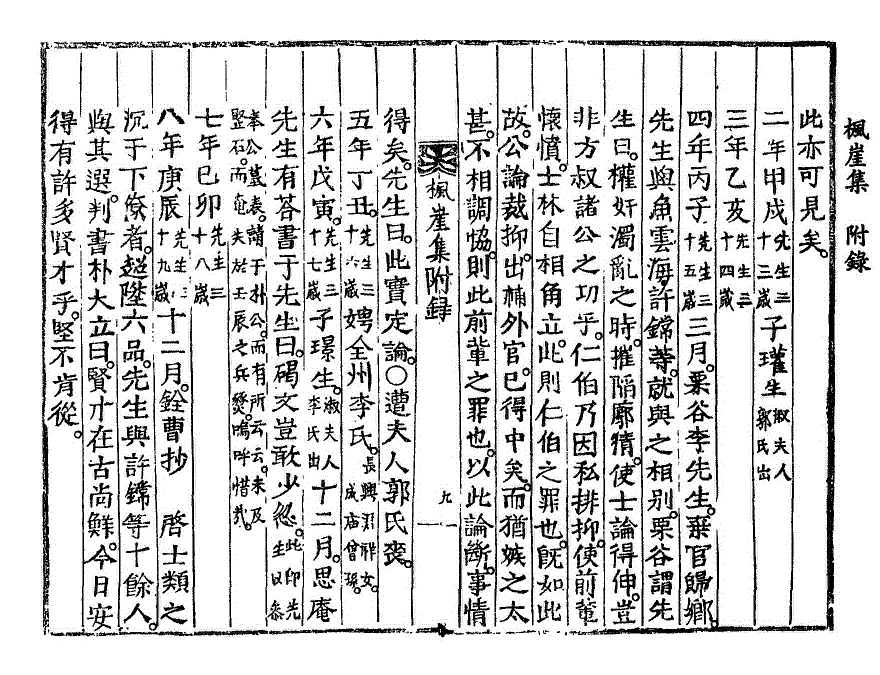 楓崖集 附錄
此亦可見矣。
二年甲戌先生三十三歲子瓘生淑夫人郭氏出
三年乙亥先生三十四歲
四年丙子先生三十五歲三月。栗谷李先生。棄官歸鄉。
先生與魚雲海許鏛等。就與之相別。栗谷謂先
生曰。權奸濁亂之時。摧陷廓淸。使士論得伸。豈
非方叔諸公之功乎。仁伯乃因私排抑。使前輩
懷憤。士林自相角立。此則仁伯之罪也。旣如此
故。公論裁抑。出補外官。已得中矣。而猶嫉之太
甚。不相調恊。則此前輩之罪也。以此論斷。事情
楓崖集附錄 九
得矣。先生曰。此實定論。○遭夫人郭氏喪。
五年丁丑。先生三十六歲娉全州李氏。長興君祥女。成庙曾孫。
六年戊寅。先生三十七歲子璟生淑夫人李氏出十二月。思庵
先生有答書于先生曰。碣文豈敢少忽。此卽先生以參
奉公墓表。請于朴公。而有所云云。未及竪石。而竟失於壬辰之兵燹。嗚呼惜哉。
七年己卯先生三十八歲
八年庚辰先生三十九歲十二月。銓曹抄 啓士類之
沉于下僚者。超陞六品。先生與許鏛等十餘人。
與其選。判書朴大立曰。賢才在古尙鮮。今日安
得有許多賢才乎。堅不肯從。